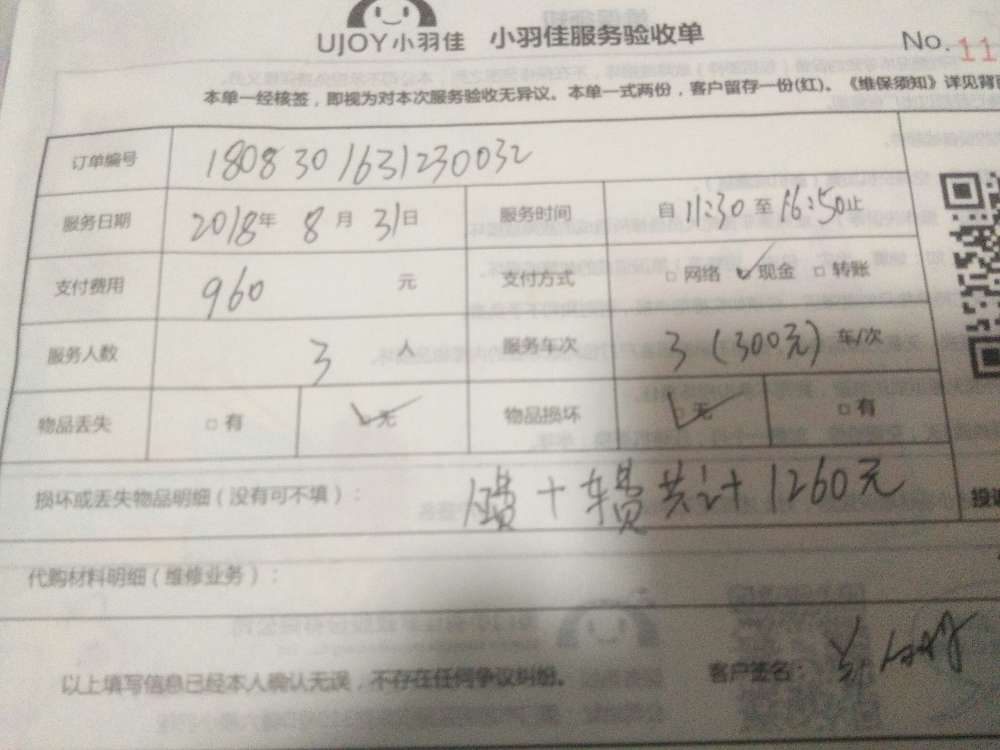 UJOY小羽佳 小羽佳服务验收单 No.11
本单一经核签，即视为对本次服务验收无异议。本单一式两份，客户留存一份(红)。《维保须知》详见背
订单编号 1808301631230032
服务日期 2018年 8月 31日 服务时间 自 11:30 至 16:50止
支付费用 960 元 支付方式 □网络 ✓现金 □转账
服务人数 3 人 服务车次 3（300元）车/次
物品丢失 □有 ☑无 物品损坏 ☑无 □有
损坏或丢失物品明细（没有可不填）： 人费＋车费共计 1260元
代购材料明细（维修业务）：
以上填写信息已经本人确认无误，不存在任何争议纠纷。 客户签名：